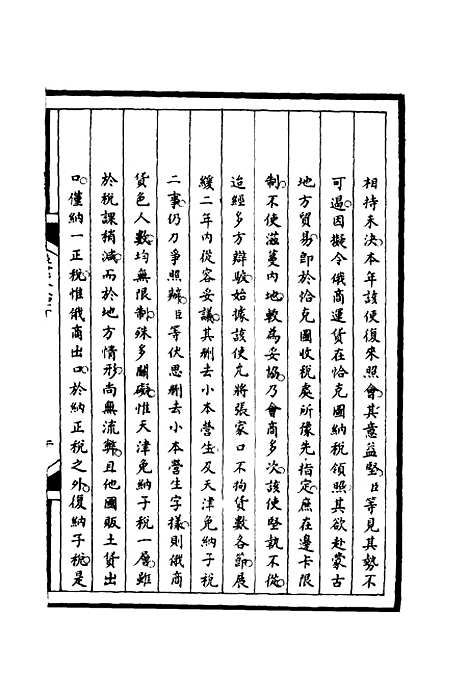 相持未決本年該使復來照會其意益堅臣等見其勢不
可過因擬令俄商運貨在恰克圖納稅領照其欲赴蒙古
地方貿易卽於恰克圖收稅處所豫先指定庶在邊卡限
制不使滋蔓內地較為妥協乃會商多次該使堅執不從
迨經多方辯駮始據該使允將張家口不拘貨數各節展
緩二年內從容妥議其刪去小本營生及天津免納子稅
二事仍力爭照辦臣等伏思刪去小本營生字樣則俄商
貨色人數均無限制殊多關礙惟天津免納子稅一層雖
於稅課稍減而於地方情形尚無流弊且他國販土貨出
口僅納一正稅惟俄商出口於納正稅之外復納子稅是